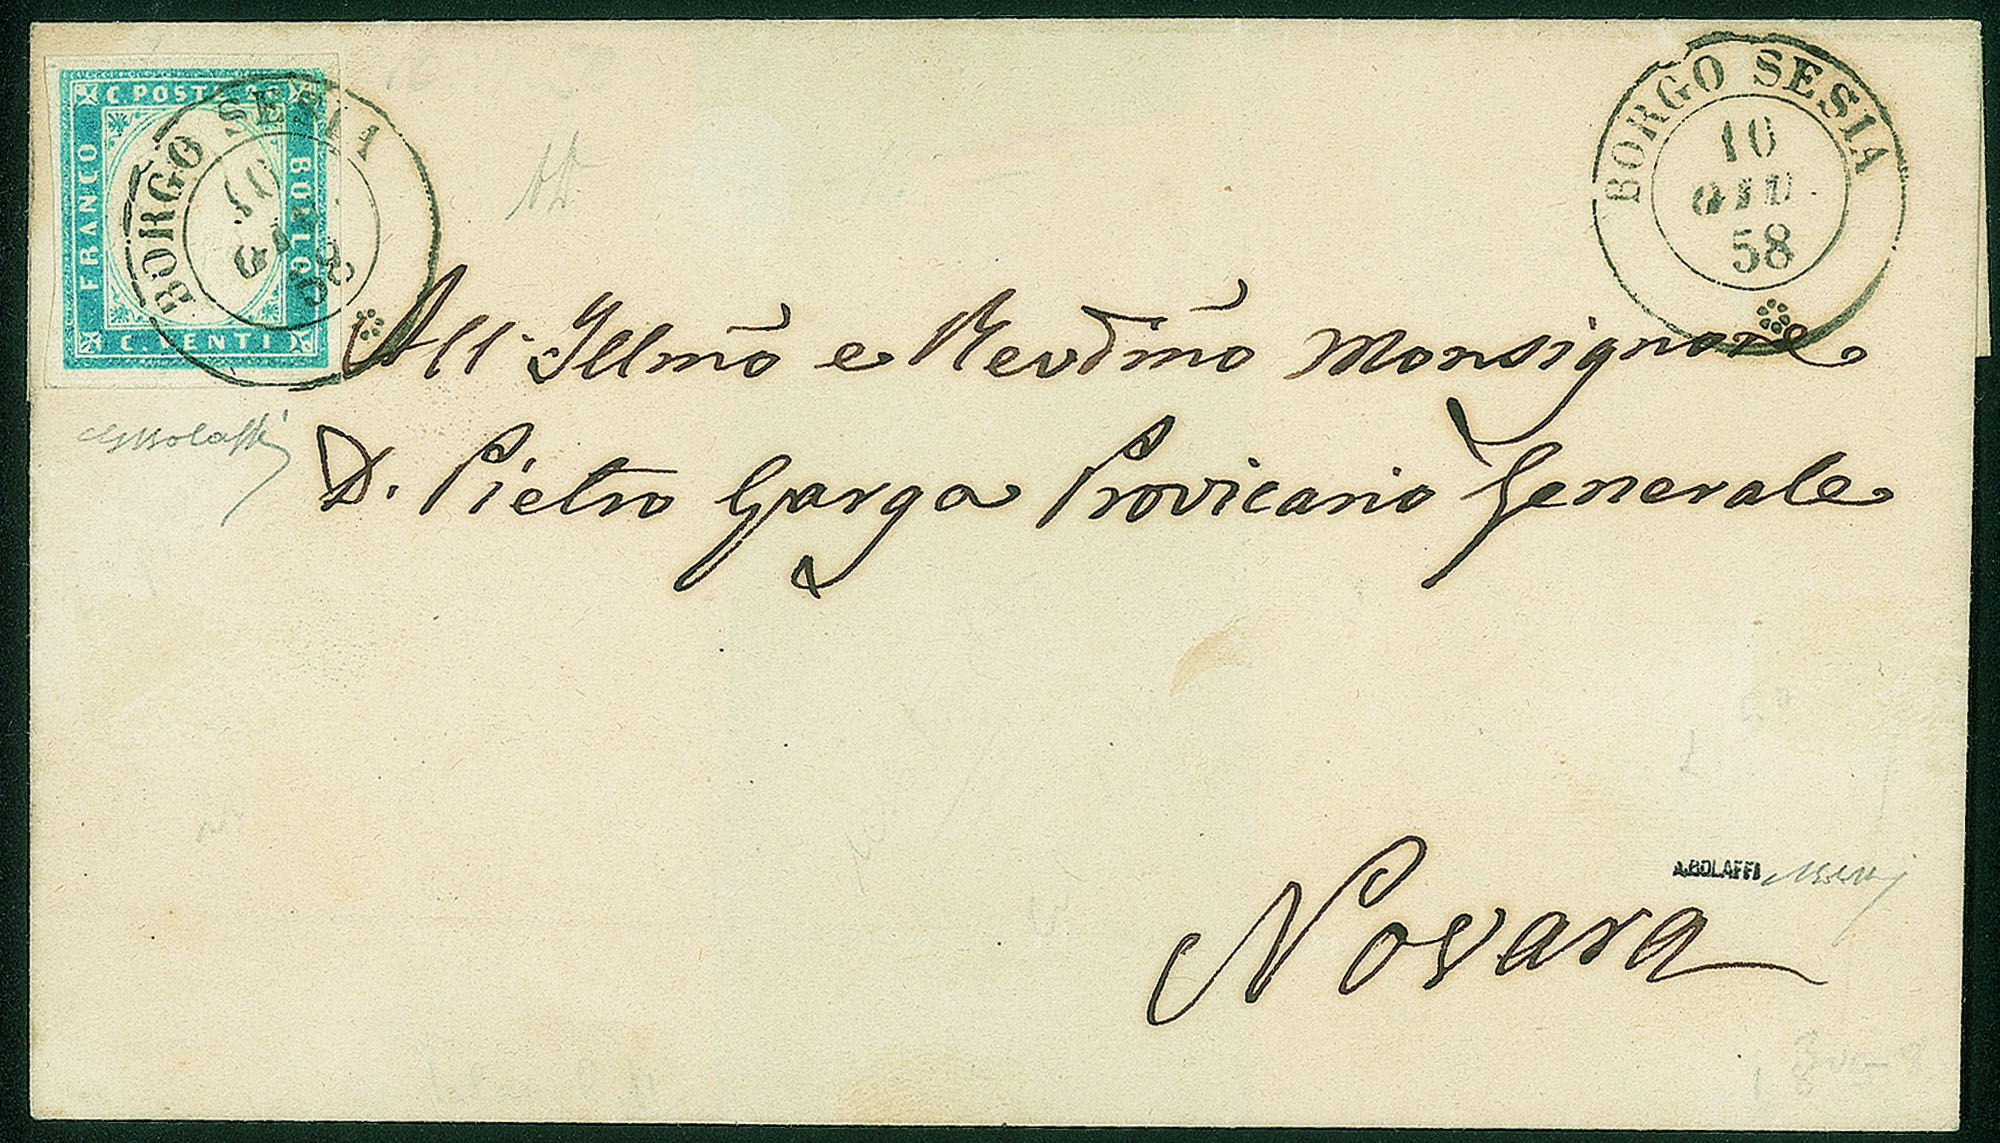 C. POSTE 20
FRANCO
BOLLO
C. VENTI
BORGO SESIA
10
GIU
58
BORGO SESIA
10
GIU
58
All. Illmo e Revdmo Monsignore
D. Pietro Garga Provicario Generale
A.BOLAFFI
Novara